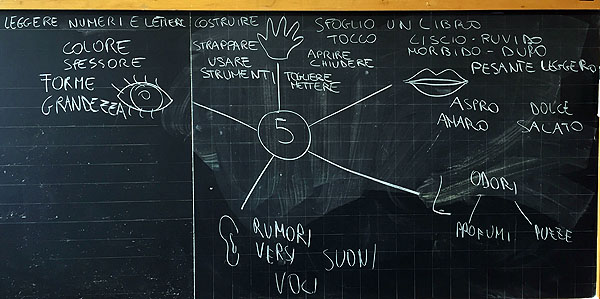 LEGGERE NUMERI E LETTERE
COLORE
SPESSORE
FORME
GRANDEZZA
COSTRUIRE
STRAPPARE
USARE
STRUMENTI
SFOGLIO UN LIBRO
TOCCO
APRIRE
CHIUDERE
TOGLIERE
METTERE
LISCIO - RUVIDO
MORBIDO - DURO
PESANTE LEGGERO
ASPRO
AMARO
DOLCE
SALATO
5
ODORI
PROFUMI
PUZZE
RUMORI
VERSI
SUONI
VOCI